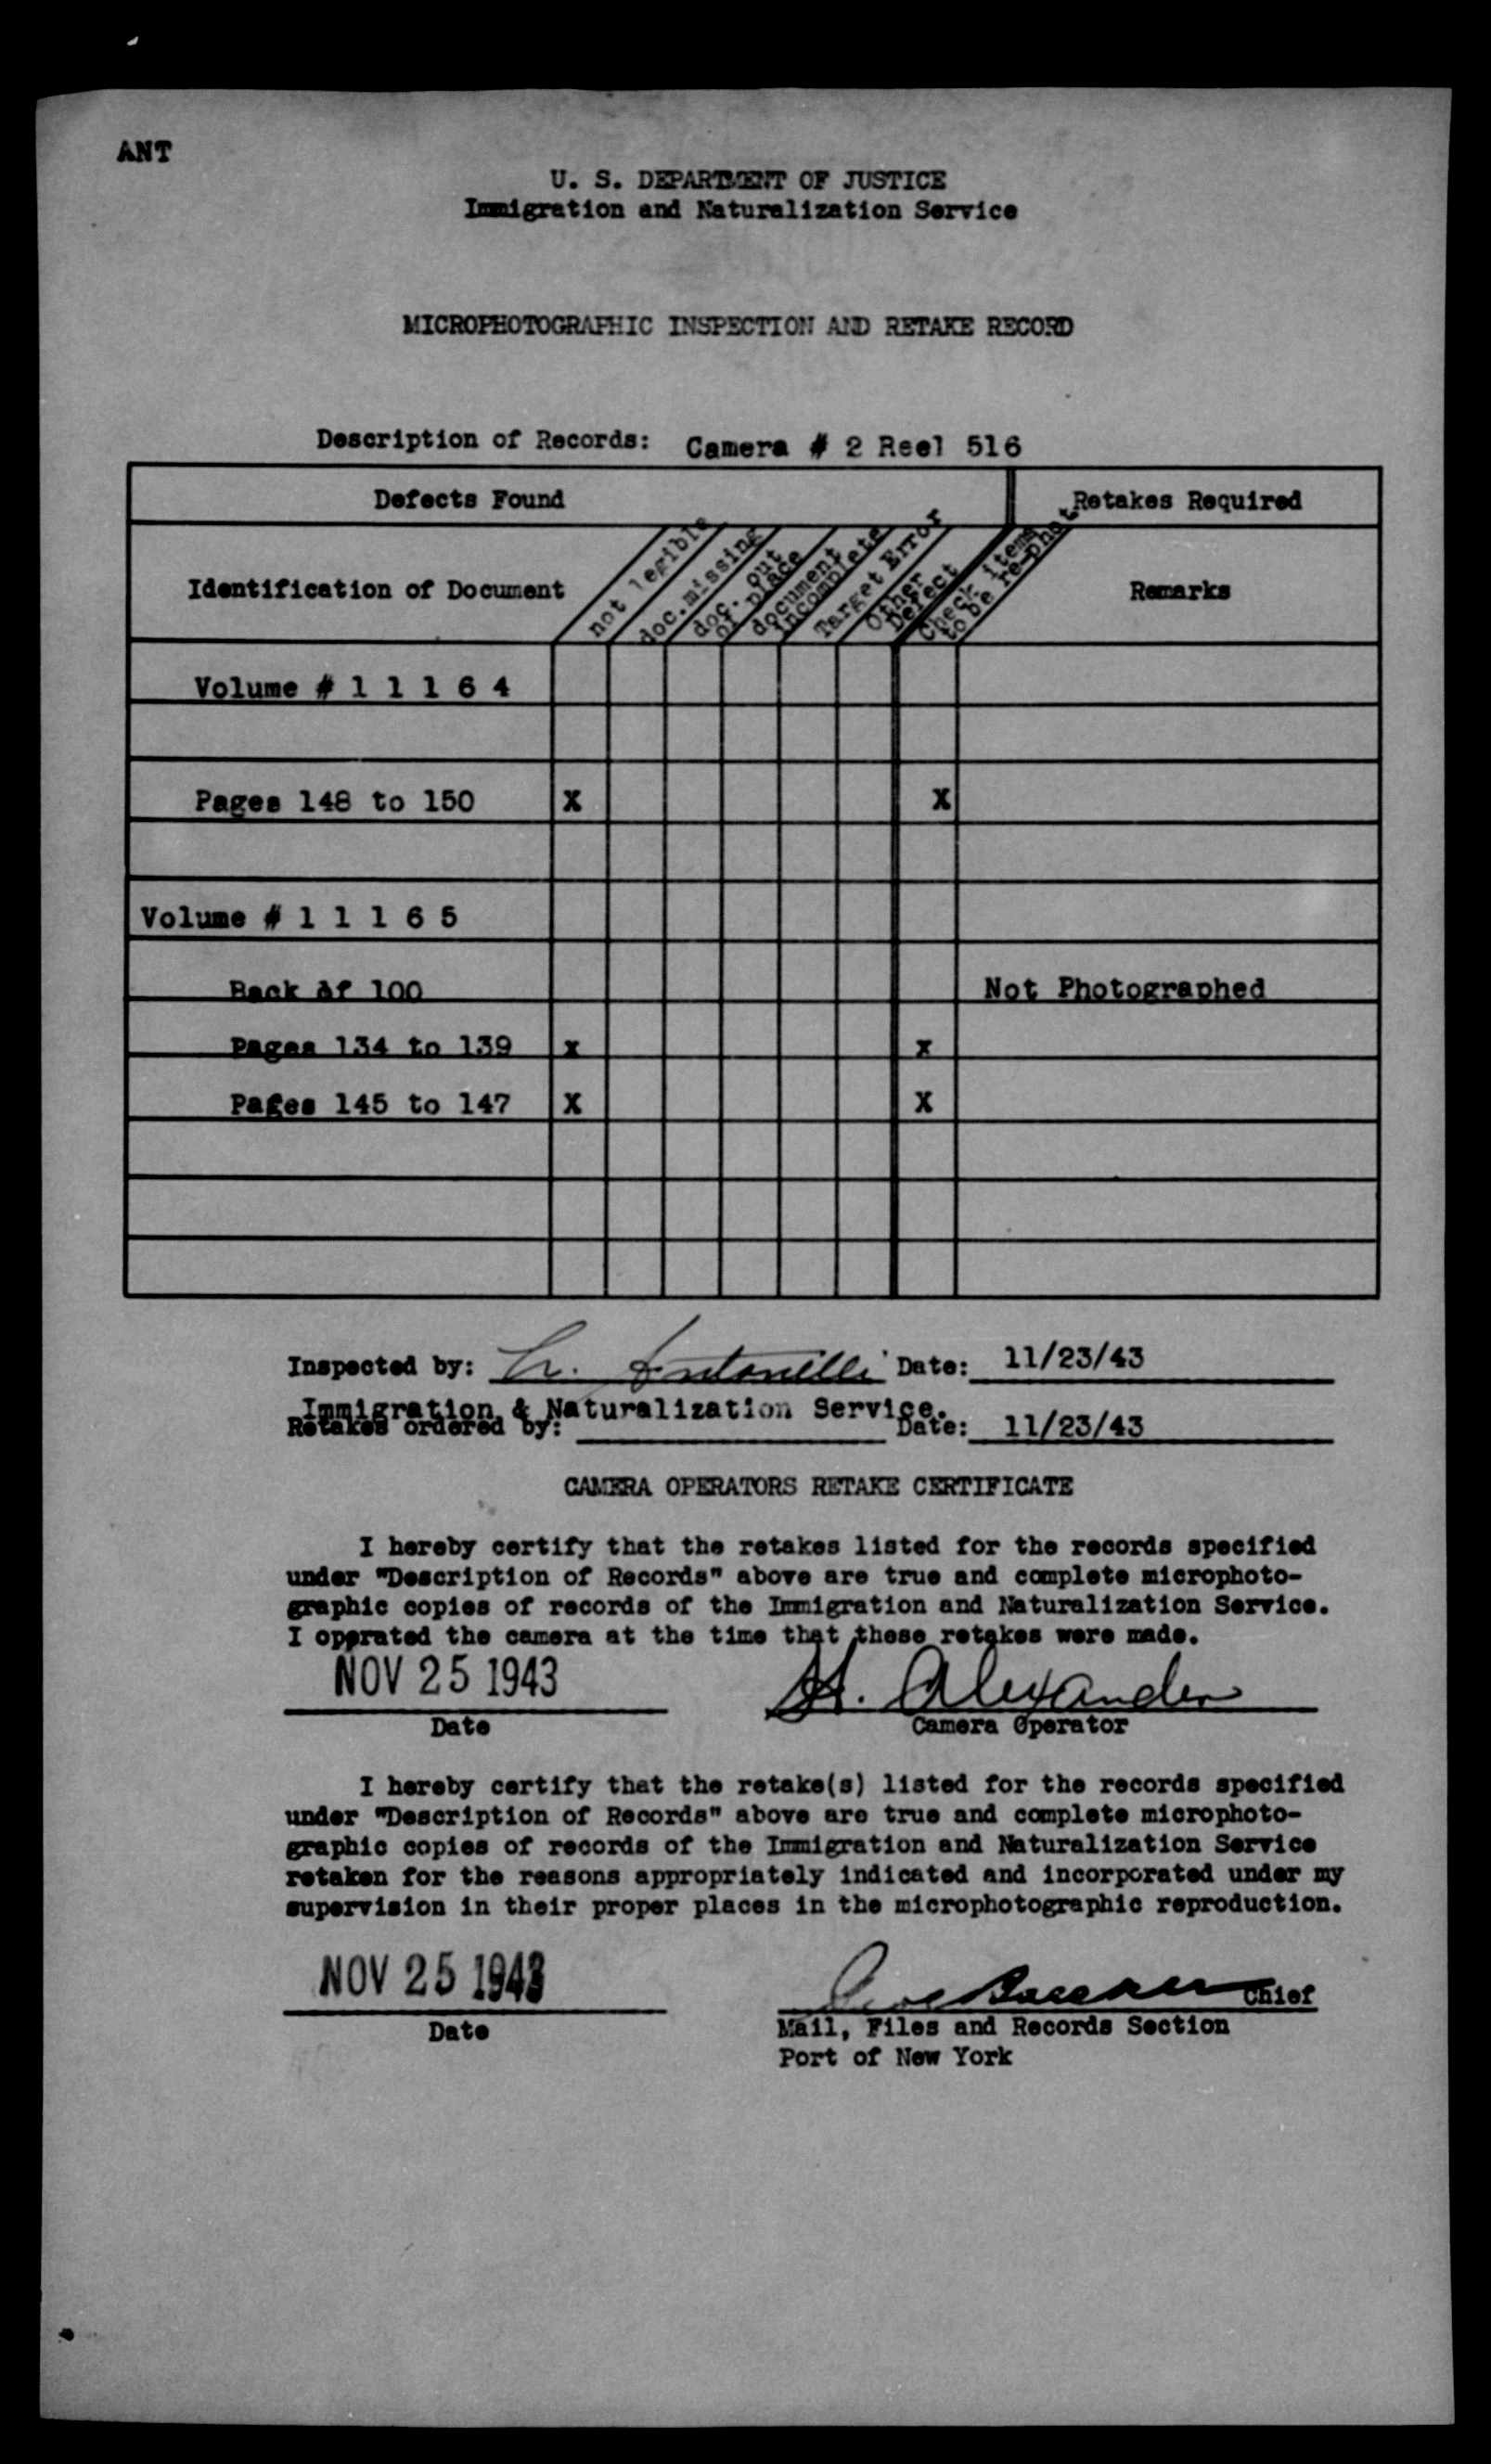 ANT
U. S. DEPARTMENT OF JUSTICE
Immigration and Naturalization Service
MICROPHOTOGRAPHIC INSPECTION AND RETAKE RECORD
Description of Records: Camera # 2 Reel 516
Defects Found
Retakes Required
Identification of Document
not legible
doc.missing
doc. out
of place
document
incomplete
Target Error
Other
Defect
Check items
to be re-phot
Remarks
Volume # 1 1 1 6 4
Pages 148 to 150 X X
Volume # 1 1 1 6 5
Back of 100 Not Photographed
Pages 134 to 139 x x
Pages 145 to 147 X X
Inspected by: L. Antonelli Date: 11/23/43
Immigration & Naturalization Service.
Retakes ordered by: Date: 11/23/43
CAMERA OPERATORS RETAKE CERTIFICATE
I hereby certify that the retakes listed for the records specified
under "Description of Records" above are true and complete microphoto-
graphic copies of records of the Immigration and Naturalization Service.
I operated the camera at the time that these retakes were made.
NOV 25 1943 H. Alexander
Date Camera Operator
I hereby certify that the retake(s) listed for the records specified
under "Description of Records" above are true and complete microphoto-
graphic copies of records of the Immigration and Naturalization Service
retaken for the reasons appropriately indicated and incorporated under my
supervision in their proper places in the microphotographic reproduction.
NOV 25 1943 Chief
Date Mail, Files and Records Section
Port of New York